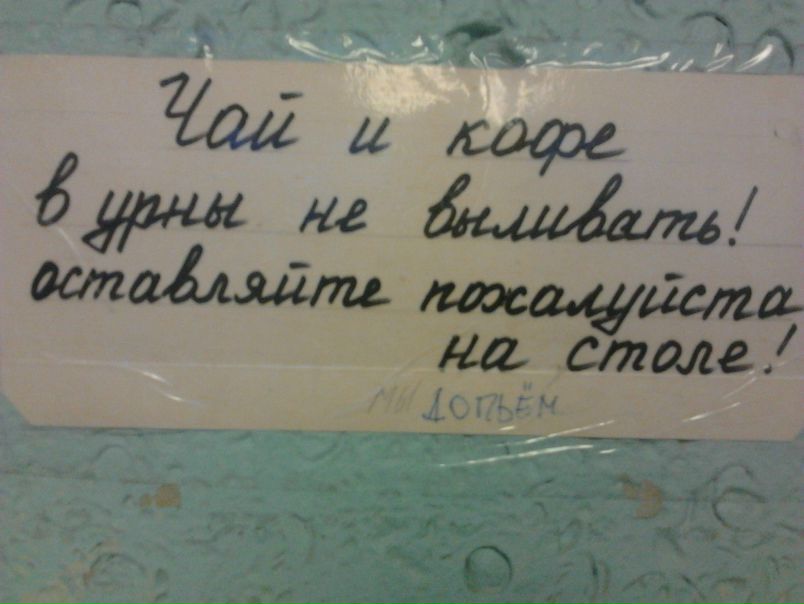 Чай и кофе
в урны не выливать!
оставляйте пожалуйста
на столе!
мы допьём